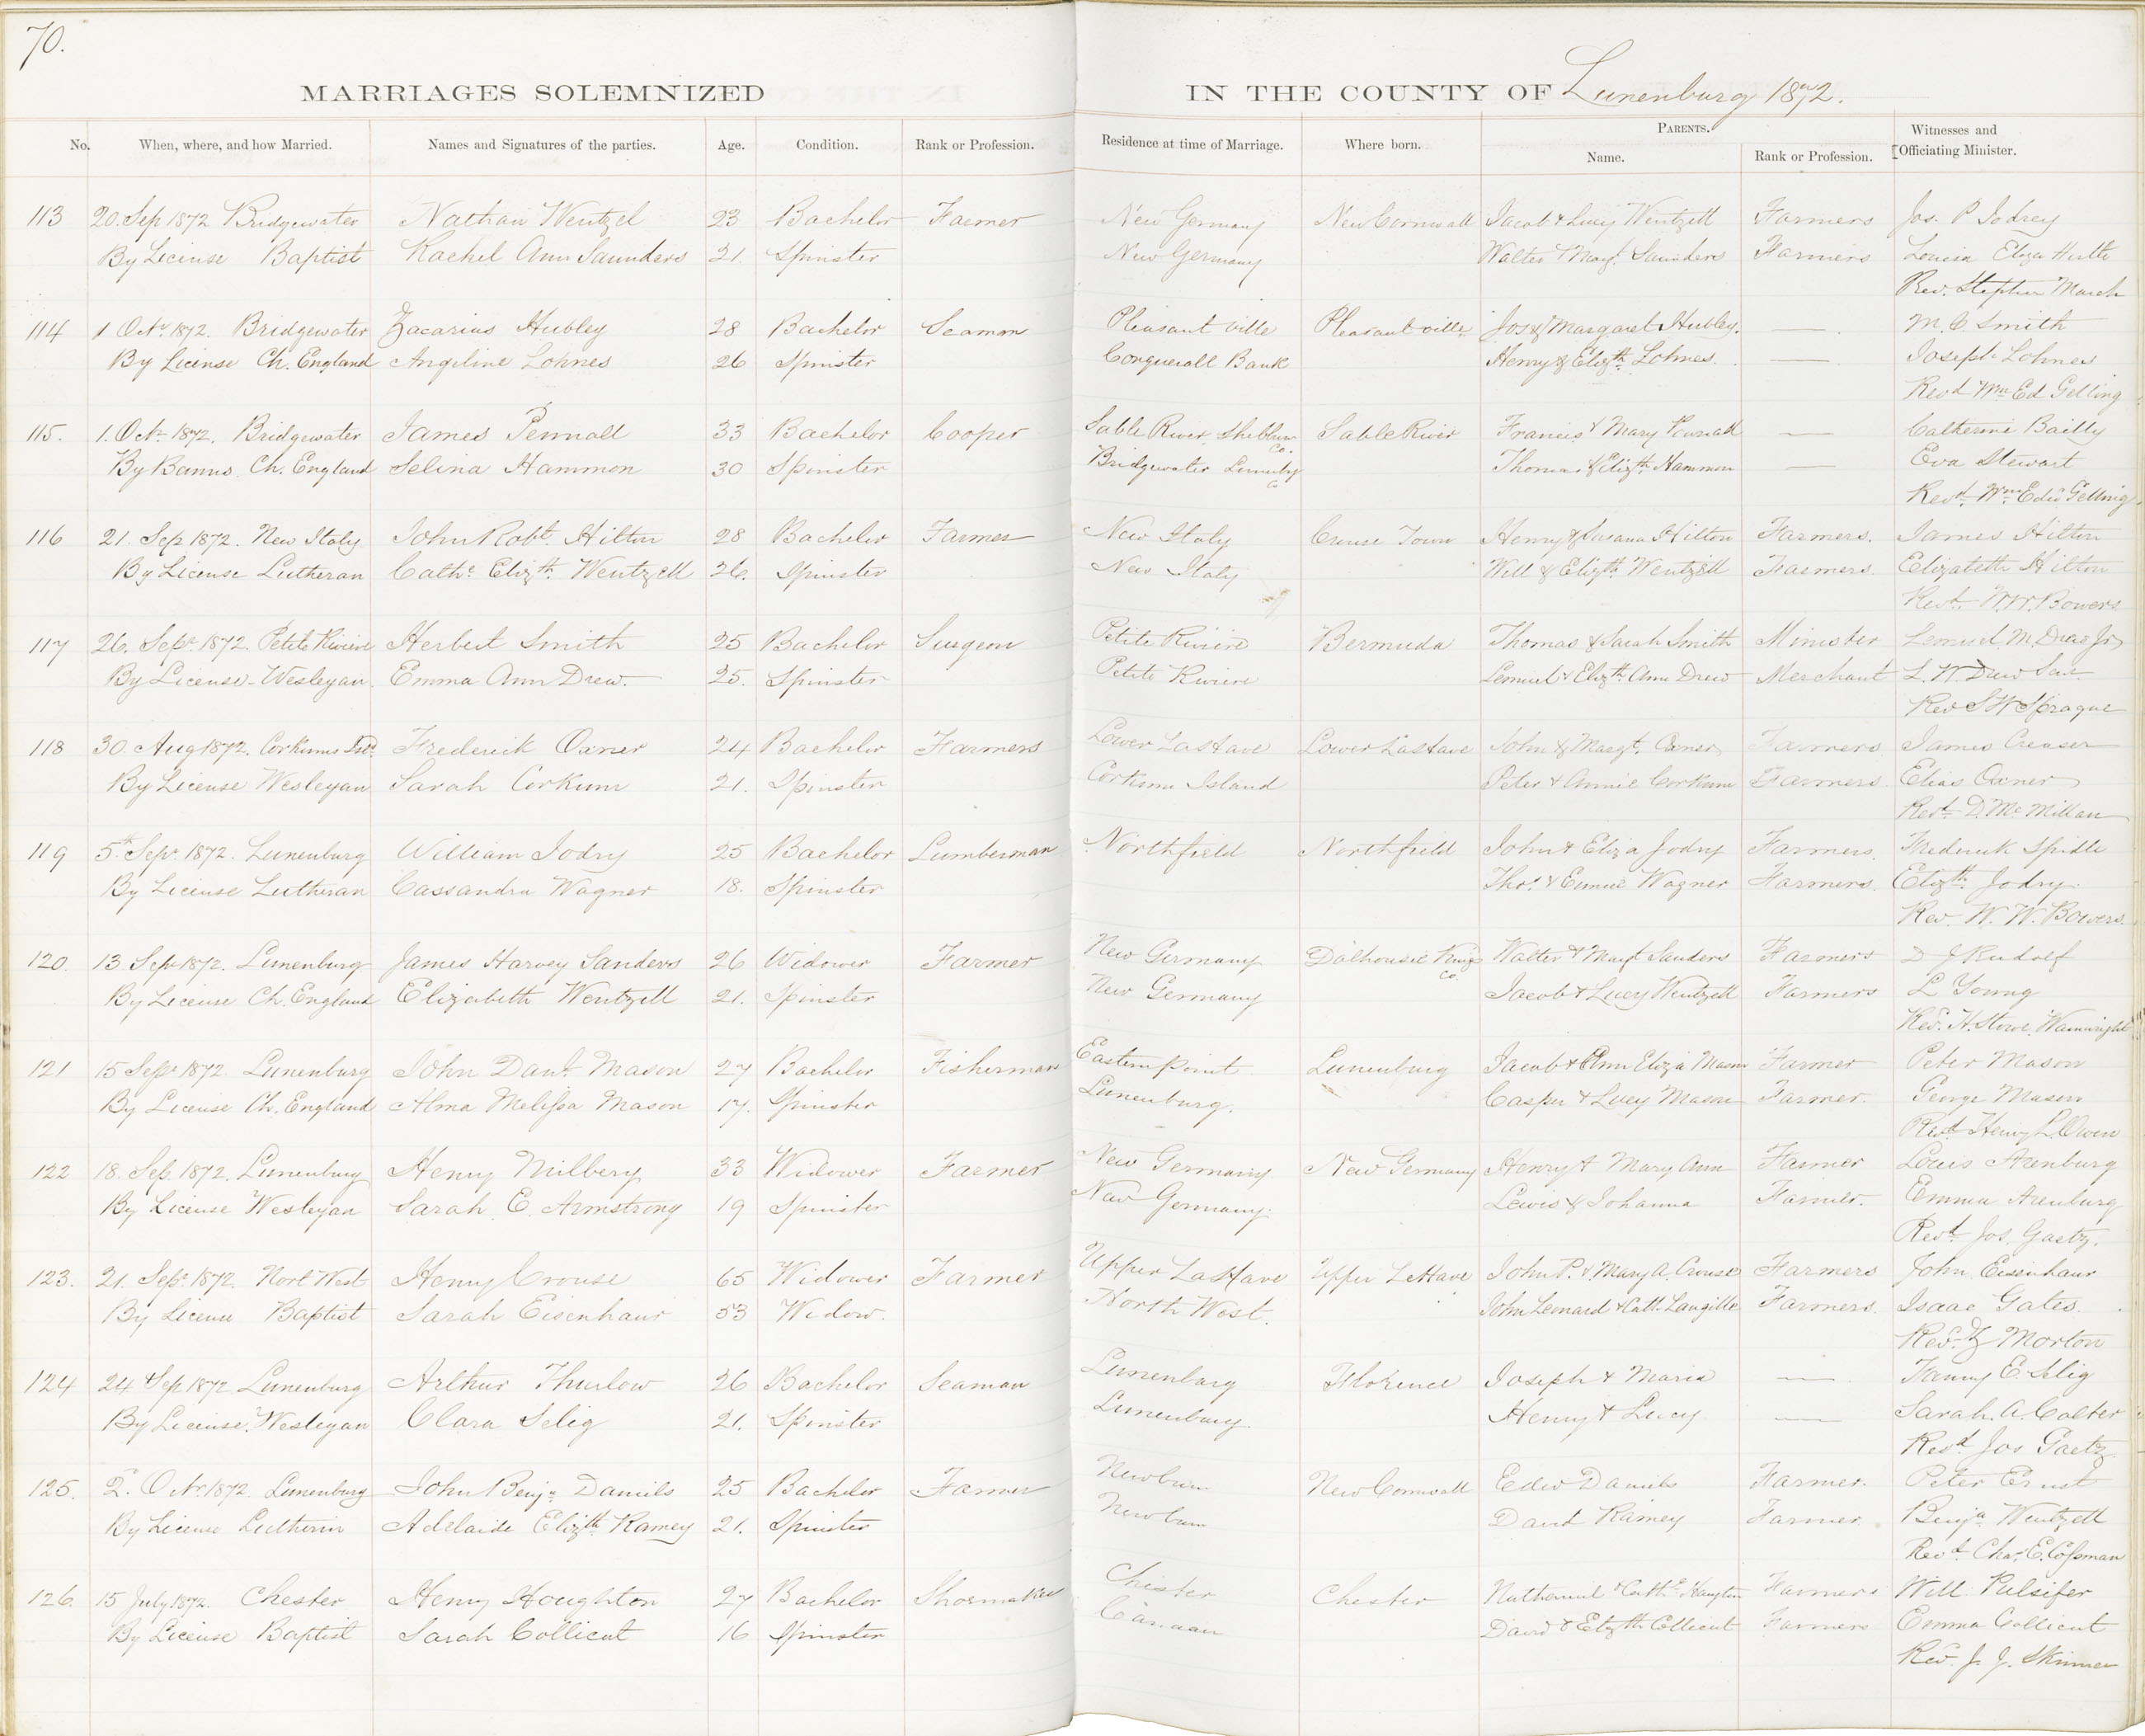 70.
MARRIAGES SOLEMNIZED IN THE COUNTY OF Lunenburg 1872.
No. When, where, and how Married. Names and Signatures of the parties. Age. Condition. Rank or Profession. Residence at time of Marriage. Where born. PARENTS. Witnesses and
Name. Rank or Profession. Officiating Minister.
113 20. Sep 1872 Bridgewater Nathan Wentzel 23 Bachelor Farmer New Germany New Cornwall Jacob & Lucy Wentzell Farmers Jos. P Jodrey
By License Baptist Rachel Ann Saunders 21. Spinster New Germany Walter & Margt. Saunders Farmers Eliza
Rev. Stephen March
114 1 Octr. 1872. Bridgewater Zacarias Hubley 28 Bachelor Seaman Pleasant ville Pleasant ville Jos & Margaret Hubley. — M. C Smith
By License Ch. England Angiline Lohnes 26 Spinster Conquerall Bank Henry & Elizth. Lohnes. — Joseph Lohnes
Revd Wm Ed Gelling
115. 1. Octr 1872. Bridgewater James Pennall 33 Bachelor Cooper Sable River Shelburn Co. Sable River Francis & Mary — Catherine Bailly
By Banns. Ch. England Selina Hammon 30 Spinster Bridgewater Lunenby Co Thomas & Elizth. Hammon — Eva Stewart
Revd. Wm Edwd Gelling
116 21. Sep 1872. New Italy John Robt. Hilton 28 Bachelor Farmer New Italy Crouse Town Henry & Susana Hilton Farmers. James Hilton
By License Lutheran Cathe. Elizth. Wentzell 26. Spinster New Italy Will & Elizth Wentzell Farmers. Elizabeth Hilton
Revd. W. W. Bowers
117 26. Sepr. 1872. Petite Riviere Herbert Smith 25 Bachelor Surgeon Petite Riviere Bermuda Thomas & Sarah Smith Minister Lemuel M. Drew Jr
By License - Wesleyan. Emma Ann Drew. 25. Spinster Petite Riviere Lemuel & Elizth. Ann Drew Merchant L. W. Drew Sen
Rev S W Sprague
118 30. Aug 1872. Corkums Isd. Frederick Oxner 24 Bachelor Farmers Lower LaHave Lower LaHave John & Margt. Oxner Farmers James Creaser
By License Wesleyan Sarah Corkum 21. Spinster Corkum Island Peter & Annie Corkum Farmers Elias Oxner
Revd. D. McMillan
119 5th. Sepr. 1872. Lunenburg William Jodry 25 Bachelor Lumberman Northfield Northfield John & Eliza Jodry Farmers. Frederick Spidle
By License Lutheran Cassandra Wagner 18. Spinster Thos. & Wagner Farmers. Elizth. Jodry.
Rev. W. W. Bowers.
120. 13. Sepr 1872. Lunenburg James Harvey Sanders 26 Widower Farmer New Germany Dalhousie Kings Co. Walter & Margt Sanders Farmers D J Rudolf
By License Ch. England Elizabeth Wentzell 21. Spinster New Germany Jacob & Lucy Wentzell Farmers L Young
Revd. H. Stowe. Wainwright
121 15 Sepr 1872. Lunenburg John Danl. Mason 27 Bachelor Fisherman Eastern point Lunenburg Jacob & Ann Eliza Mason Farmer Peter Mason
By License Ch. England Alma Melissa Mason 17. Spinster Lunenburg. Casper & Lucy Mason Farmer. George Mason
Revd Henry L. Owen
122 18. Sep. 1872. Lunenburg Henry Milbery 33 Widower Farmer New Germany New Germany Henry & Mary Ann Farmer Louis Arenburg
By License Wesleyan Sarah E. Armstrong 19 Spinster New Germany. Lewis & Johanna Farmer. Emma Arenburg
Revd. Jos. Gaetz.
123. 21. Sepr. 1872. Nort West Henry Crouse 65 Widower Farmer Upper LaHave Upper LeHave John P. & Mary A. Crouse Farmers John Eisenhaur
By License Baptist Sarah Eisenhaur 53 Widow. North West. John Leonard & Cath. Langille Farmers. Isaac Gates.
Revd. Z Morton
124 24 Sep 1872 Lunenburg Arthur Thurlow 26 Bachelor Seaman Lunenburg Florence Joseph & Maria — Fanny E. Selig
By License. Wesleyan Clara Selig 21. Spinster Lunenburg. Henry & Lucy — Sarah. A. Colter
Revd Jos Gaetz
125. 2. Octr. 1872. Lunenburg John Benja Daniels 25 Bachelor Farmer Newburn New Cornwall Edwd Daniels Farmer. Peter Ernst
By License Lutherin Adelaide Elizth. Ramey 21. Spinster Newburn David Ramey Farmer. Benja Wentzell
Revd. Chas. E. Cossman
126. 15 July 1872. Chester Henry Houghton 27 Bachelor Shoemaker Chester Chester Nathaniel & Cathe. Farmers Will Pulsifer
By License Baptist Sarah Collicut 16 Spinster Canaan David & Elizth Collicut Farmers Emma Collicut
Revd. J. J. Skinner